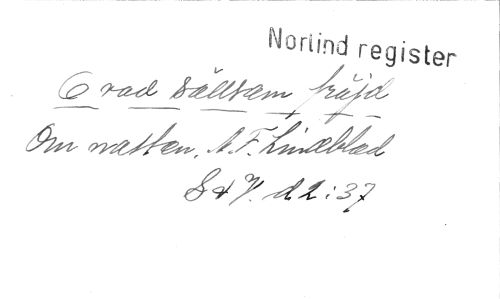 Norlind register
O rad sällsam fröjd
Om natten. A. F. Lindblad
S & V. d 2:37